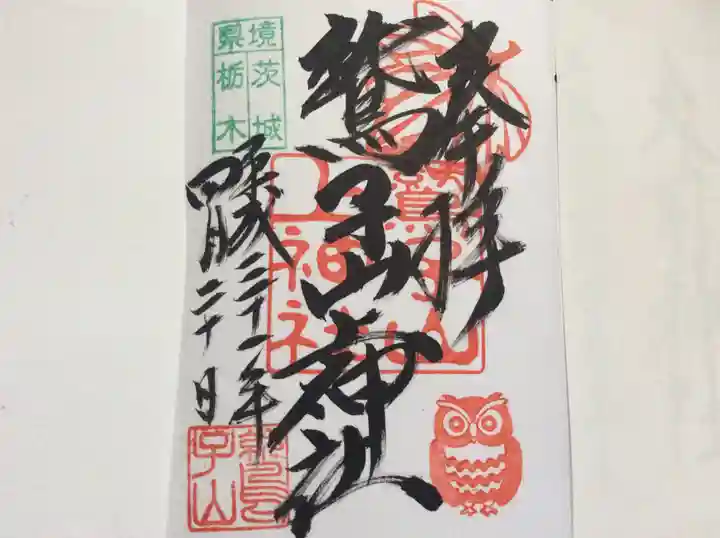 奉拝
鷲子山
上神社
鷲子山上神社
県境
茨城
栃木
平成三十一年
四月二十日
鷲
子山